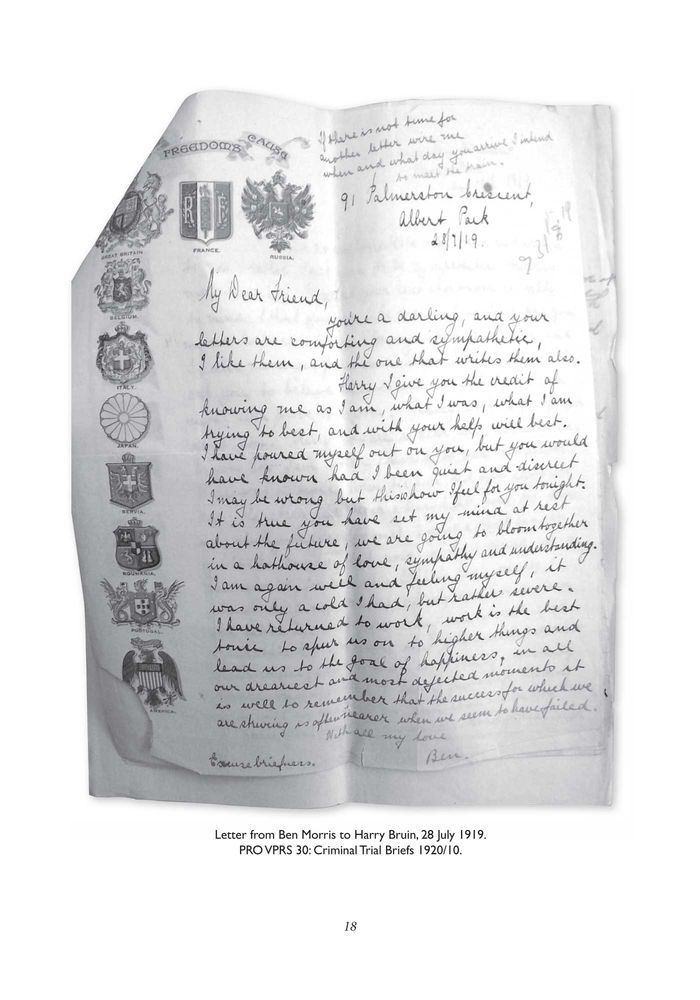 If there is not time for
another letter wire me
when and what day you arrive I intend
to meet the train.
FREEDOM'S CAUSE
91 Palmerston Crescent,
Albert Park
28/7/19.
GREAT BRITAIN
FRANCE.
RUSSIA.
BELGIUM.
ITALY.
JAPAN.
SERVIA.
ROUMANIA.
PORTUGAL.
AMERICA.
My Dear Friend,
you're a darling, and your
letters are comforting and sympathetic,
I like them, and the one that writes them also.
Harry I give you the credit of
knowing me as I am, what I was, what I am
trying to best, and with your help will best.
I have poured myself out on you, but you would
have known had I been quiet and discreet
I may be wrong but this is how I feel for you tonight.
It is true you have set my mind at rest
about the future, we are going to bloom together
in a hothouse of love, sympathy and understanding.
I am again well and feeling myself, it
was only a cold I had, but rather severe.
I have returned to work, work is the best
tonic to spur us on to higher things and
lead us to the goal of happiness, in all
our dreariest and most dejected moments it
is well to remember that the success for which we
are striving is often nearer when we seem to have failed.
With all my love
Ben.
Excuse briefness.
Letter from Ben Morris to Harry Bruin, 28 July 1919.
PRO VPRS 30: Criminal Trial Briefs 1920/10.
18